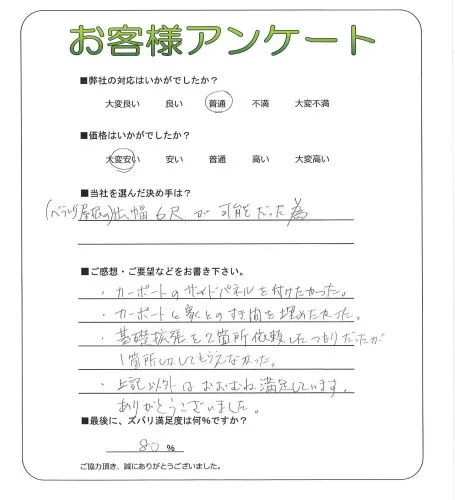 お客様アンケート
■弊社の対応はいかがでしたか?
大変良い 良い 普通 不満 大変不満
■価格はいかがでしたか?
大変安い 安い 普通 高い 大変高い
■当社を選んだ決め手は?
(ベランダ屋根の)出幅6尺が可能だった為
■ご感想・ご要望などをお書き下さい。
・カーポートのサイドパネルを付けたかった。
・カーポートと家とのすき間を埋めたかった。
・基礎拡張を2箇所依頼したつもりだったが
1箇所しかしてもらえなかった。
・上記以外はおおむね満足しています。
ありがとうございました。
■最後に、ズバリ満足度は何%ですか?
80 %
ご協力頂き、誠にありがとうございました。